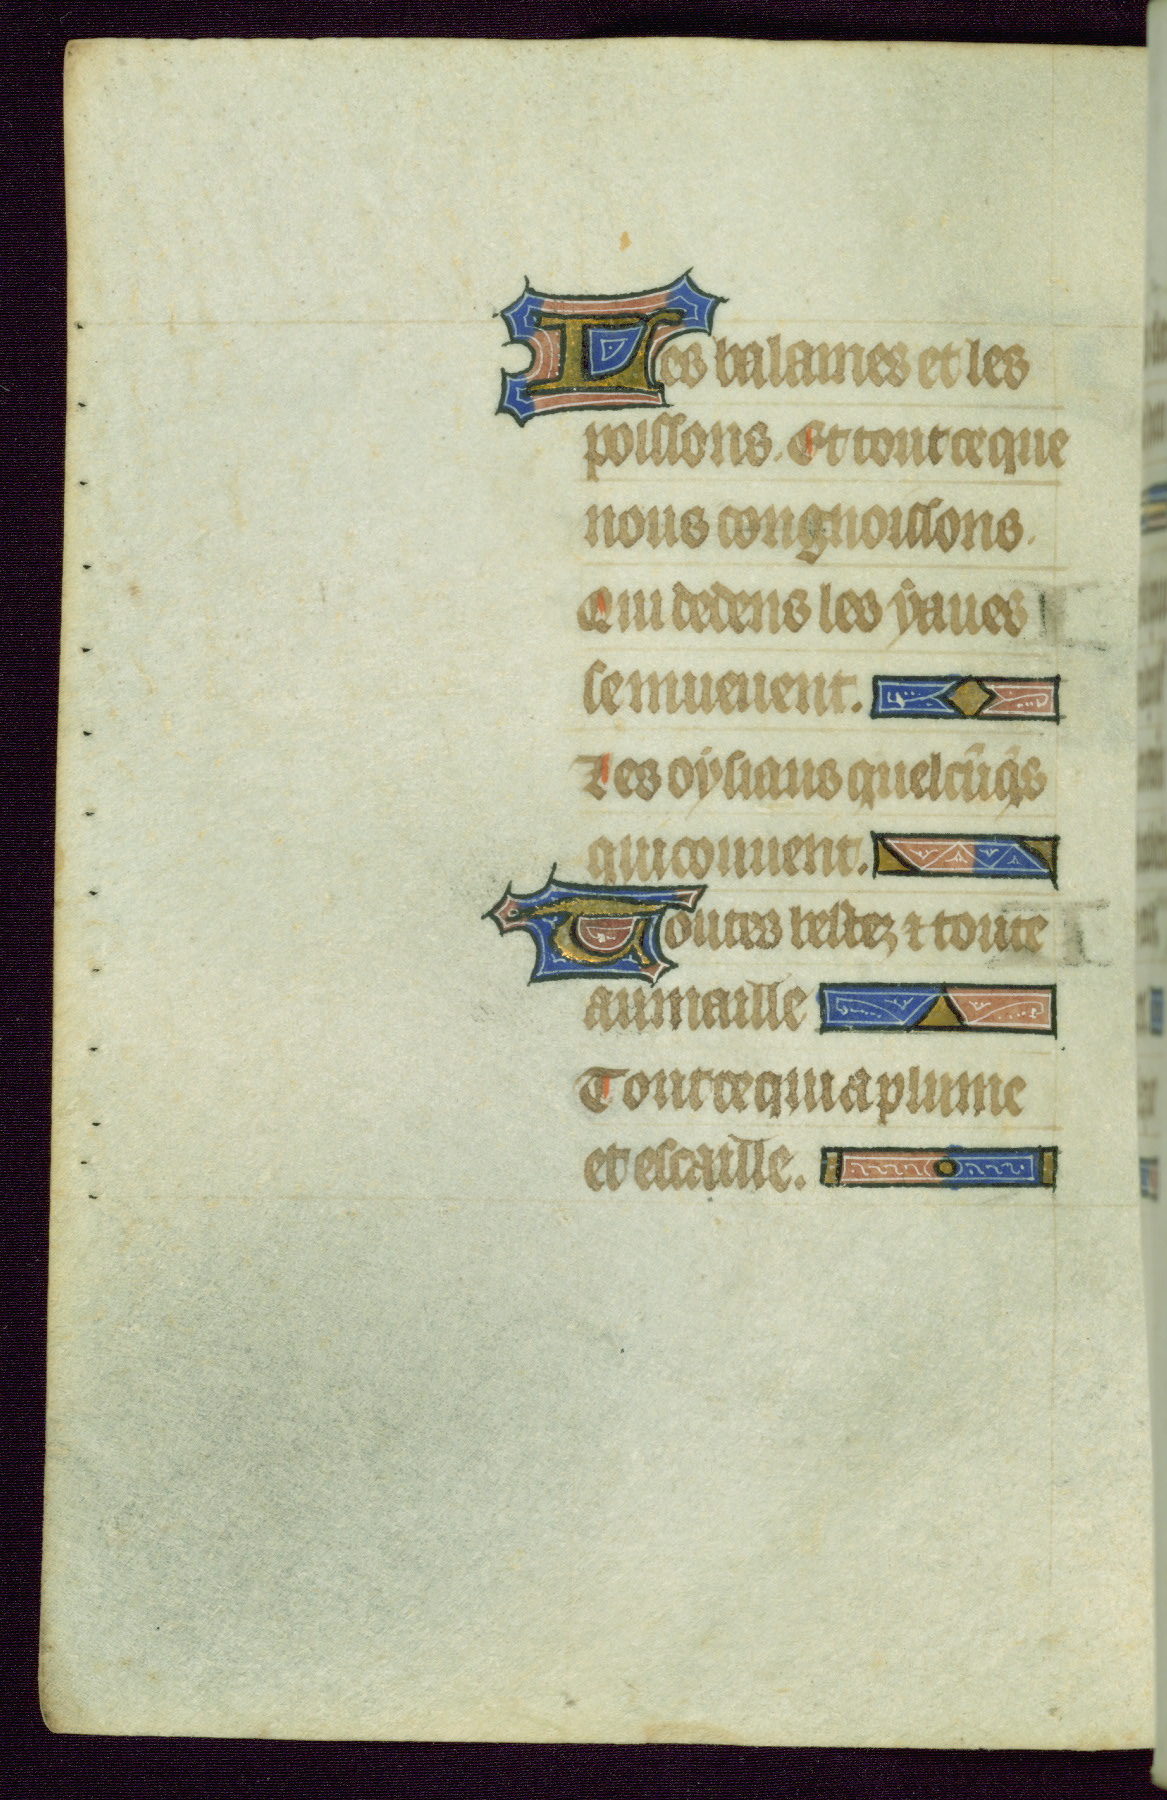 Les balaines et les
poissons. Et tout ce que
nous congnoissons.
Qui dedens les yaues
se mueuent.
Les oysiaus quelcūq̄s
qui couuent.
Toutes bestez ⁊ toute
aumaille
Tout ce qui a plume
et escaille.